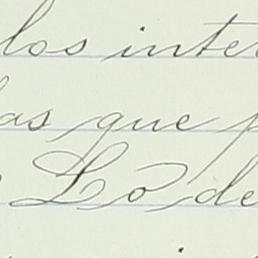 los inter
as que p
Lo de